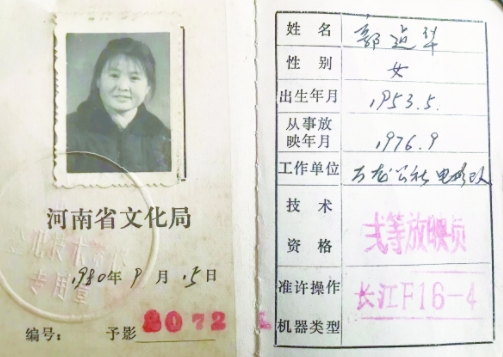 河南省文化局
专用章
1980年9月15日
编号: 予影 8072
姓名 郭 华
性别 女
出生年月 1953.5.
从事放
映年月 1976.9
工作单位 万龙公社电影队
技术
资格 弍等放映员
准许操作
机器类型 长江F16-4